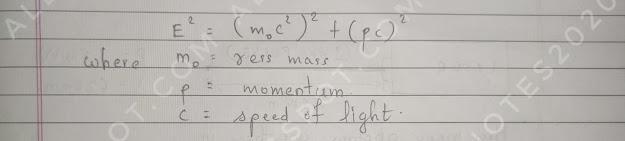 E² = (m₀c²)² + (pc)²
where m₀ = ress mass
p = momentum
c = speed of light.